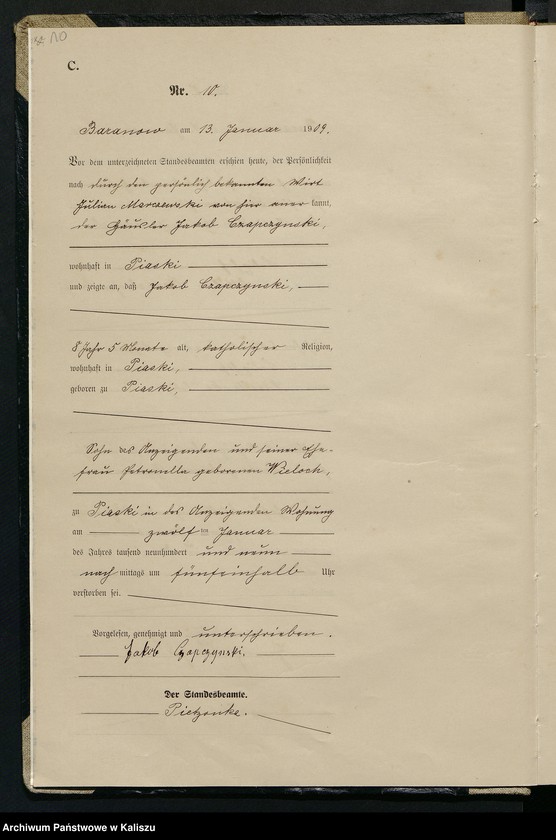 10
C.
Nr. 10.
Baranow am 13. Januar 1909.
Vor dem unterzeichneten Standesbeamten erschien heute, der Persönlichkeit
nach durch den persönlich bekannten Wirt
Julian Marczewski von hier aner kannt,
der Häusler Jakob Czapczynski,
wohnhaft in Piaski
und zeigte an, daß Jakob Czapczynski,
8 Jahr 5 Monate alt, katholischer Religion,
wohnhaft in Piaski,
geboren zu Piaski,
Sohn des Anzeigenden und seiner Ehe-
frau Petronella geborenen Wieloch,
zu Piaski in des Anzeigenden Wohnung
am zwölften Januar
des Jahres tausend neunhundert und neun
nach mittags um fünfeinhalb Uhr
verstorben sei.
Vorgelesen, genehmigt und unterschrieben.
Jakob Czapczynski.
Der Standesbeamte.
Pietzonka.
Archiwum Państwowe w Kaliszu